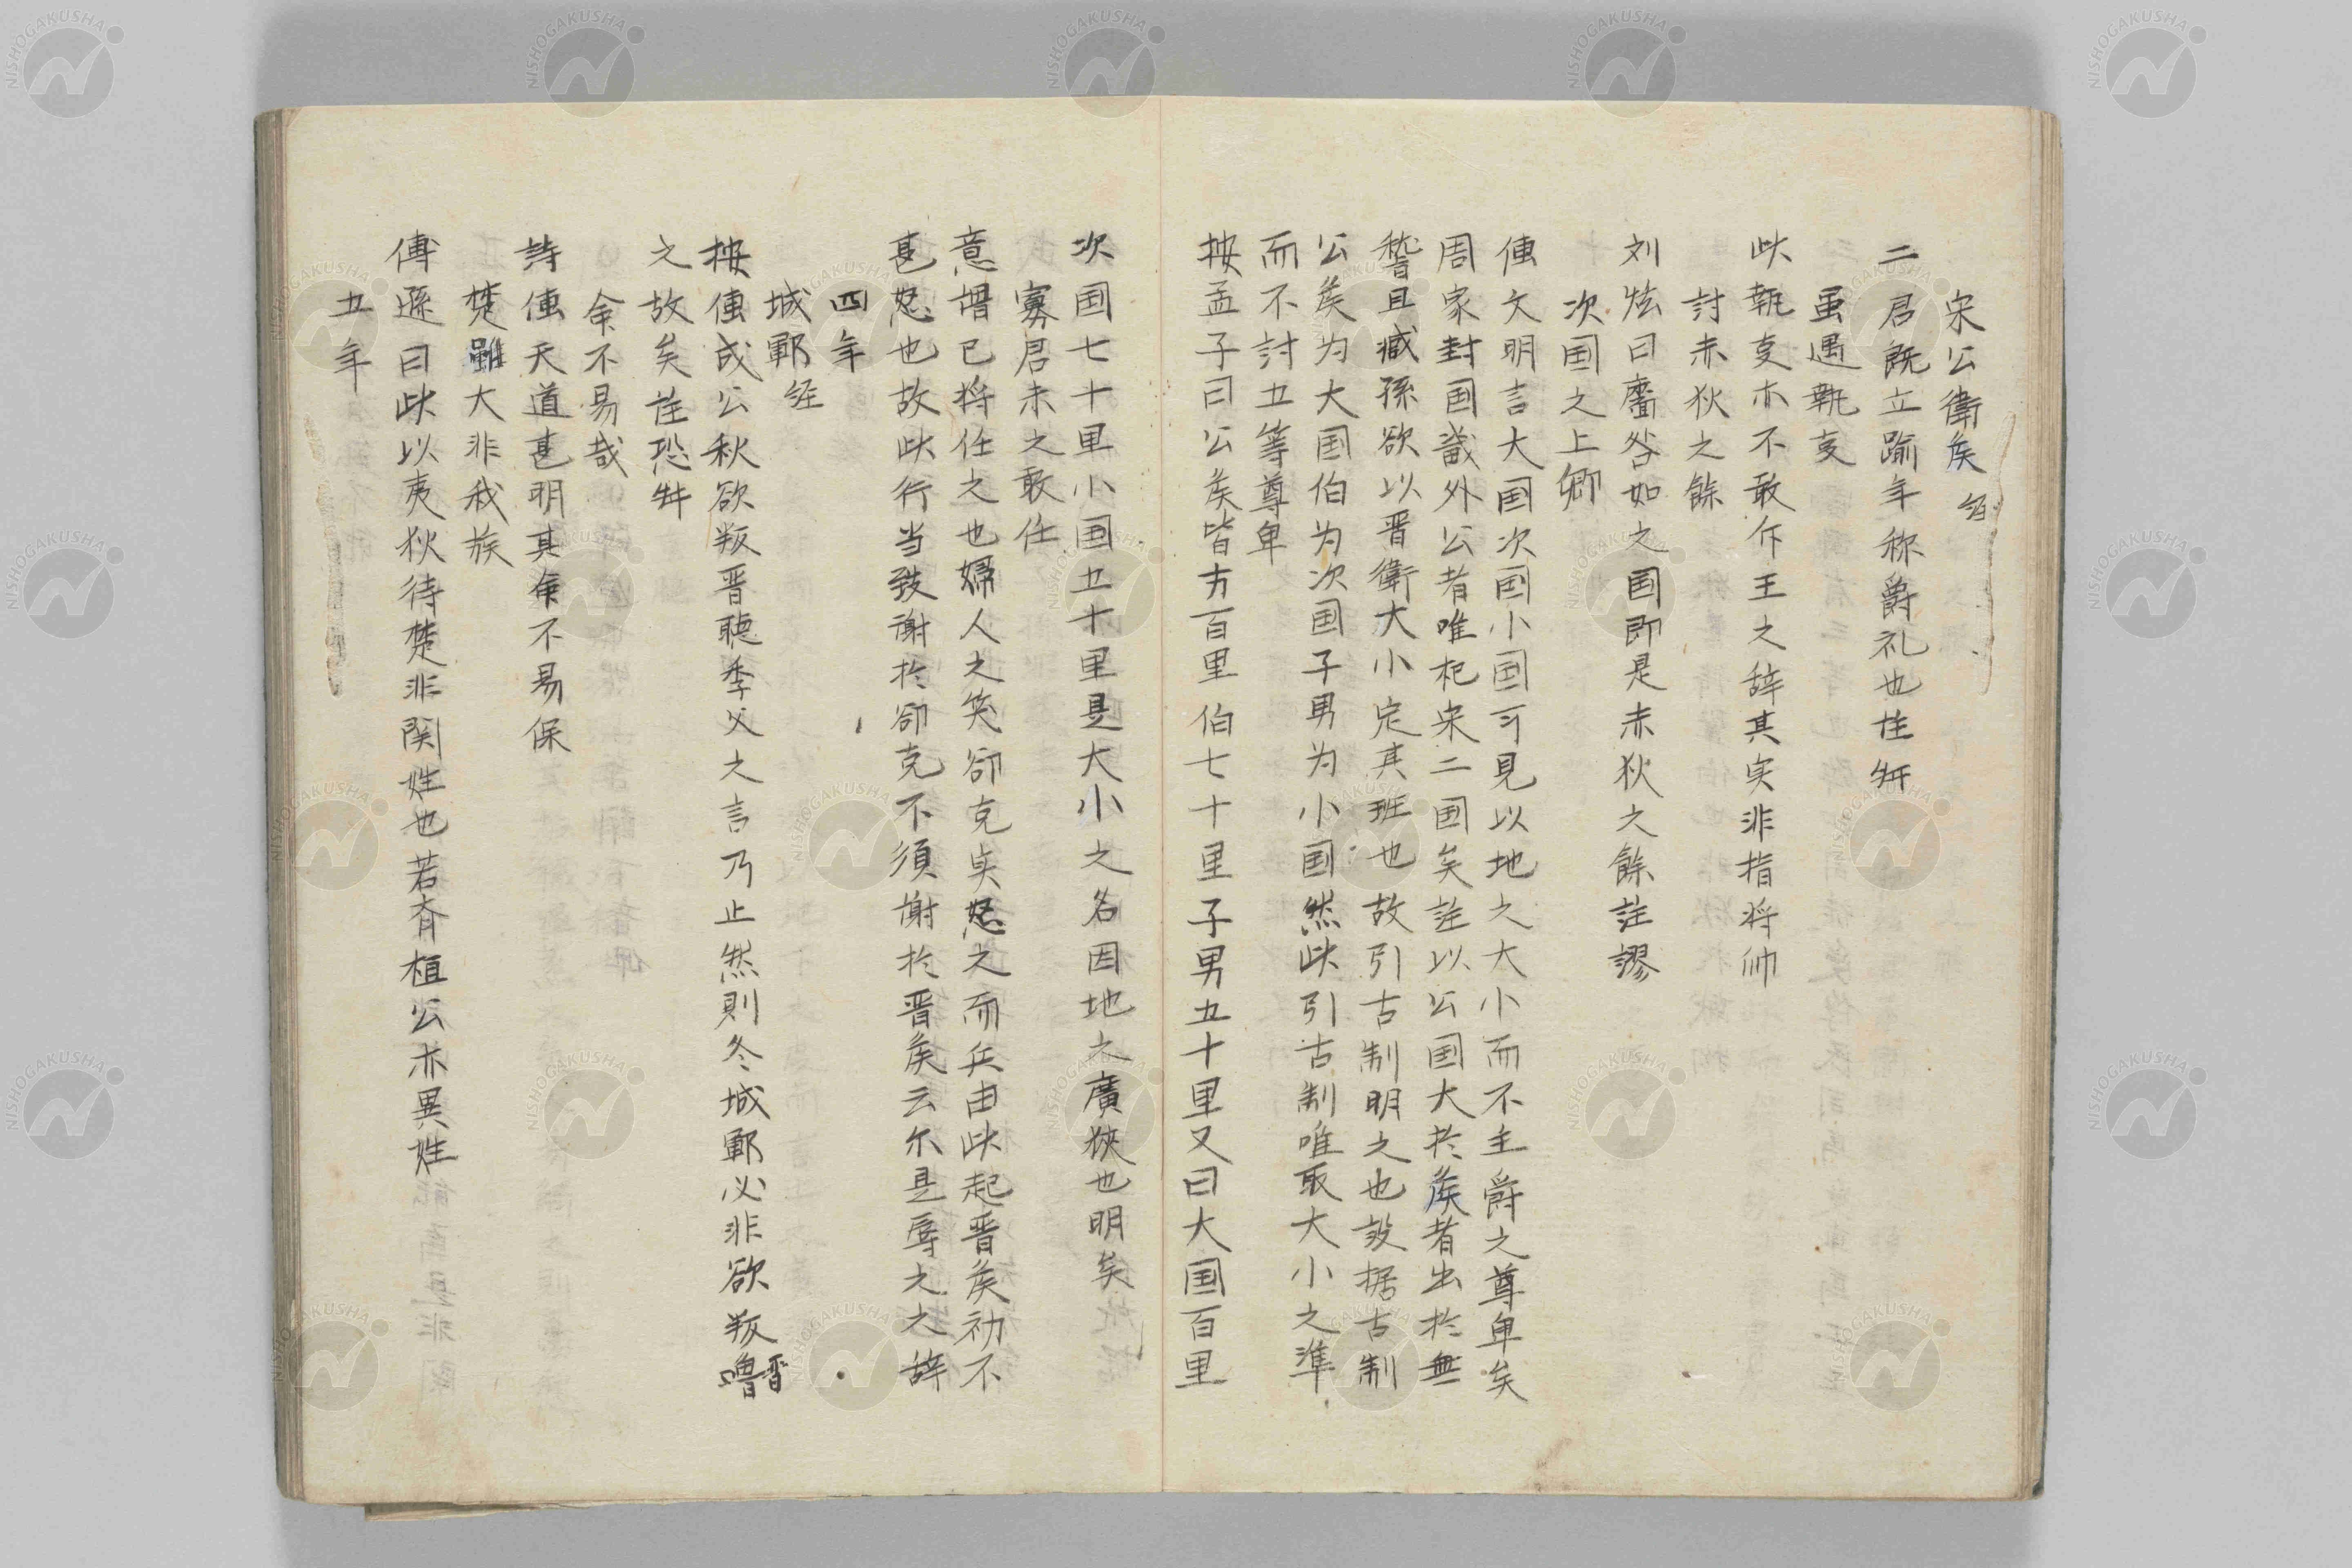 宋公衛矦 経
二君既立踰年称爵礼也注舛
虽遇執叓
此執叓亦不敢斥王之辞其実非指将帅
討赤狄之餘
刘炫曰廧咎如之国即是赤狄之餘註謬
次国之上卿
傳文明言大国次国小国可見以地之大小而不主爵之尊卑矣
周家封国畿外公者唯杞宋二国矣註以公国大於矦者出於無
稽且臧孫欲以晋衛大小定其班也故引古制明之也設据古制
公矣为大国伯为次国子男为小国然此引古制唯取大小之準
而不討五等尊卑
按孟子曰公矦皆方百里伯七十里子男五十里又曰大国百里
次国七十里小国五十里是大小之名因地之廣狹也明矣
寡君未之敢任
意增已将任之也婦人之笑郤克実怒之而兵由此起晋矦初不
甚怒也故此行当致謝於郤克不須謝於晋矦云尓是辱之之辞
四年
城鄆 経
按傳成公秋欲叛晋聴季父之言乃止然則冬城鄆必非欲叛晋
之故矣註恐舛
余不易哉
詩傳天道甚明其余不易保
楚雖大非我族
傅遜曰此以夷狄待楚非関姓也若斉桓公亦異姓
五年
NISHOGAKUSHA